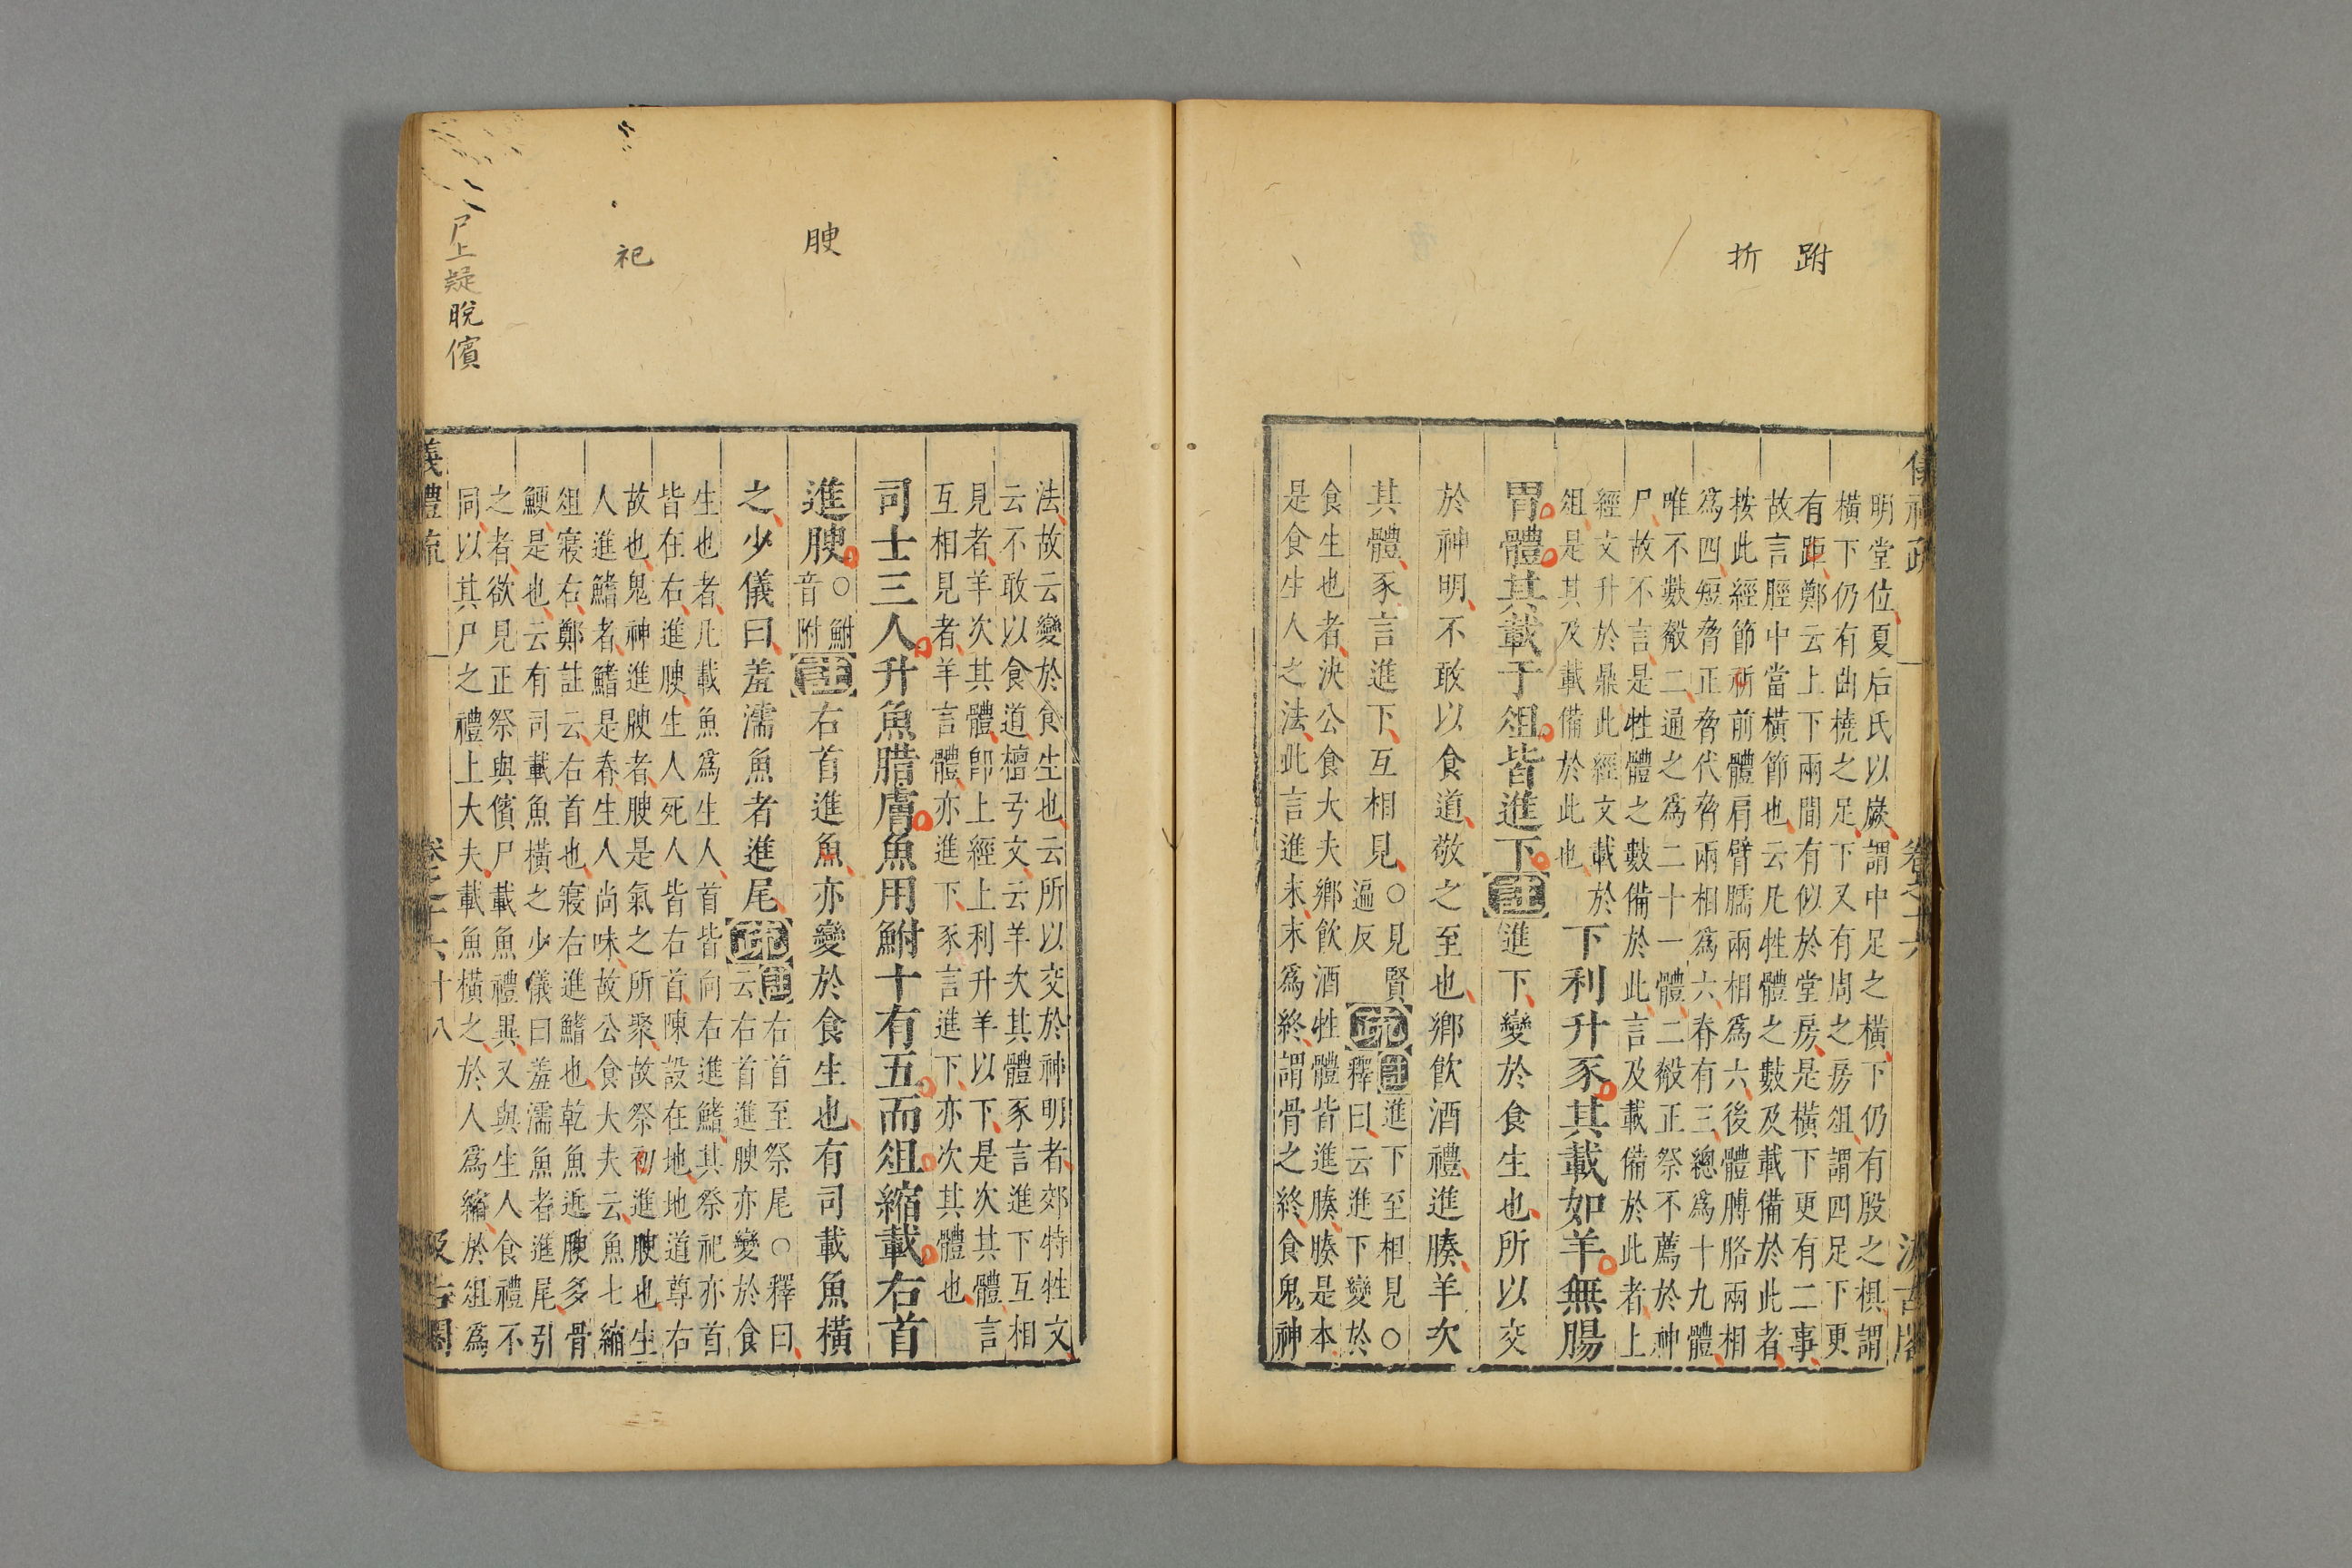 跗
折
明堂位夏后氏以嶡謂中足之橫下仍有殷之椇謂
橫下仍有曲橈之足下又有周之房俎謂四足下更
有距鄭云上下兩間有似於堂房是橫下更有二事
故言脛中當橫節也云凡牲體之數及載備於此者
按此經節祈前體肩臂臑兩相爲六後體膊胳兩相
爲四短脅正脅代脅兩相爲六脊有三總爲十九體
唯不數觳二通之爲二十一體二觳正祭不薦於神
尸故不言是牲體之數備於此言及載備於此者上
經文升於鼎此經文載於
俎是其及載備於此也
下利升豕其載如羊無腸
胃體其載于俎皆進下註進下變於食生也所以交
於神明不敢以食道敬之至也鄉飲酒禮進腠羊次
其體豕言進下互相見○見賢遍反疏註進下至相見○釋曰云進下變於
食生也者決公食大夫鄉飲酒牲體皆進腠腠是本
是食生人之法此言進末末爲終謂骨之終食鬼神
腴
祀
尸上疑脫儐
法故云變於食生也云所以交於神明者郊特牲文
云不敢以食道檀弓文云羊次其體豕言進下互相
見者羊次其體卽上經上利升羊以下是次其體言
互相見者羊言體亦進下豕言進下亦次其體也
司士三人升魚腊膚魚用鮒十有五而俎縮載右首
進腴○鮒音附註右首進魚亦變於食生也有司載魚橫
之少儀曰羞濡魚者進尾疏註右首至祭尾○釋曰云右首進腴亦變於食
生也者凡載魚爲生人首皆向右進鰭其祭祀亦首
皆在右進腴生人死人皆右首陳設在地地道尊右
故也鬼神進腴者腴是氣之所聚故祭礿進腴也生
人進鰭者鰭是脊生人尚味故公食大夫云魚七縮
俎寢右鄭註云右首也寢右進鰭也乾魚近腴多骨
鯁是也云有司載魚橫之少儀曰羞濡魚者進尾引
之者欲見正祭與儐尸載魚禮異又與生人食禮不
同以其尸之禮上大夫載魚橫之於人爲縮於俎爲
儀禮疏 卷之十六 十八 汲古閣